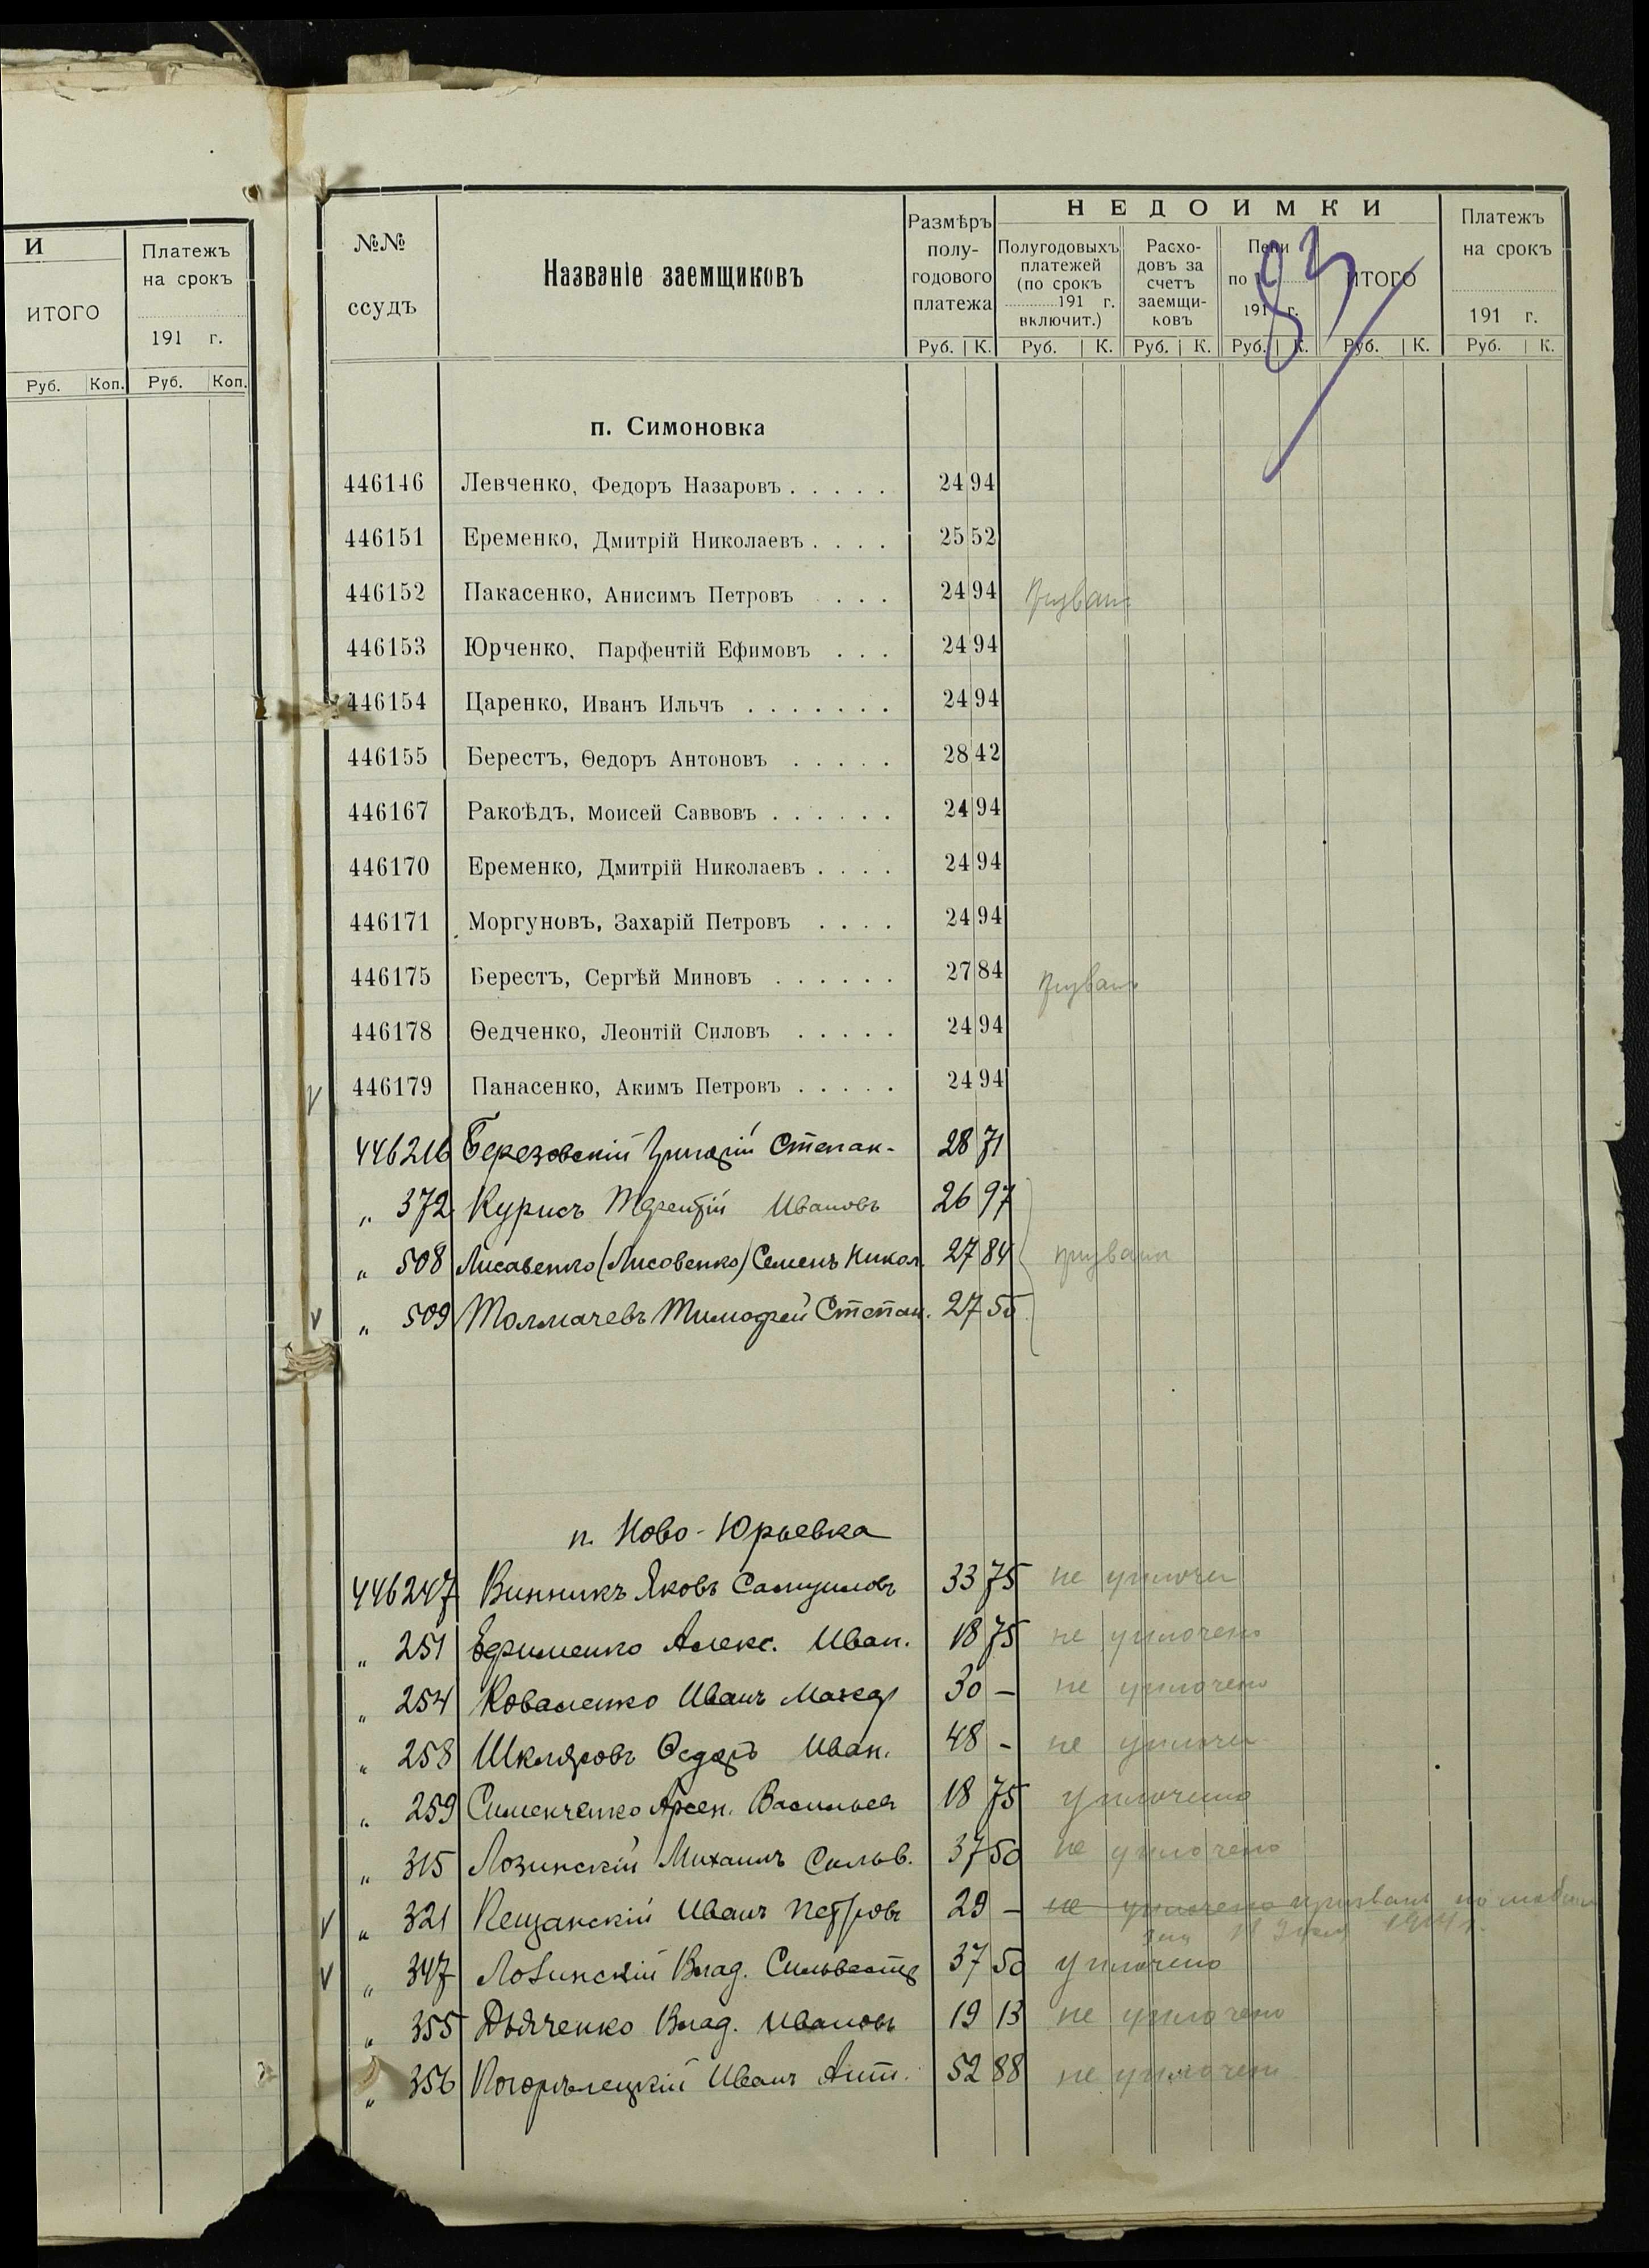 И
ИТОГО
Платежъ
на срокъ
191 г.
Руб. Коп. Руб. Коп.
93
№№
ссудъ
Названіе заемщиковъ
Размѣръ
полу-
годового
платежа
Руб. К.
НЕДОИМКИ
Полугодовыхъ
платежей
(по срокъ
191 г.
включит.)
Руб. К.
Расхо-
довъ за
счетъ
заемщи-
ковъ
Руб. К.
Пени
по
191 г.
Руб. К.
ИТОГО
Руб. К.
Платежъ
на срокъ
191 г.
Руб. К.
п. Симоновка
446146 Левченко, Федоръ Назаровъ . . . . . 24 94
446151 Еременко, Дмитрій Николаевъ . . . . 25 52
446152 Пакасенко, Анисимъ Петровъ . . . 24 94 призванъ
446153 Юрченко, Парфентій Ефимовъ . . . 24 94
446154 Царенко, Иванъ Ильчъ . . . . . . . 24 94
446155 Берестъ, Ѳедоръ Антоновъ . . . . . 28 42
446167 Ракоѣдъ, Моисей Саввовъ . . . . . . 24 94
446170 Еременко, Дмитрій Николаевъ . . . . 24 94
446171 Моргуновъ, Захарій Петровъ . . . . 24 94
446175 Берестъ, Сергѣй Миновъ . . . . . . 27 84 призванъ
446178 Ѳедченко, Леонтій Силовъ . . . . . 24 94
V 446179 Панасенко, Акимъ Петровъ . . . . . 24 94
446216 Березовскій Григорій Степан. 28 71
" 372 Курисъ Терентій Ивановъ 26 97
" 508 Лисавенко (Лисовенко) Семенъ Никол. 27 84 призваны
V " 509 Толмачевъ Тимофей Степан. 27 55
п. Ново-Юрьевка
446247 Винникъ Яковъ Самуиловъ 33 75 не уплочен
" 251 Ефименко Алекс. Иван. 18 75 не уплочено
" 254 Коваленко Иванъ Макар 30 — не уплочено
" 258 Шкляровъ Ѳедоръ Иван. 48 - не уплочен
" 259 Сименченко Арсен. Васильев 18 75 уплочено
" 315 Лозинскій Михаилъ Сильв. 37 50 не уплочено
V " 321 Кещанскій Иванъ Петровъ 29 — не уплочено призванъ по мобили
заци 18 Іюля 1914 г.
V " 347 Лозинскій Влад. Сильвестр 37 50 уплочено
" 355 Дьяченко Влад. Ивановъ 19 13 не уплочено
" 356 Погорѣлецкій Иванъ Ант. 52 88 не уплочено